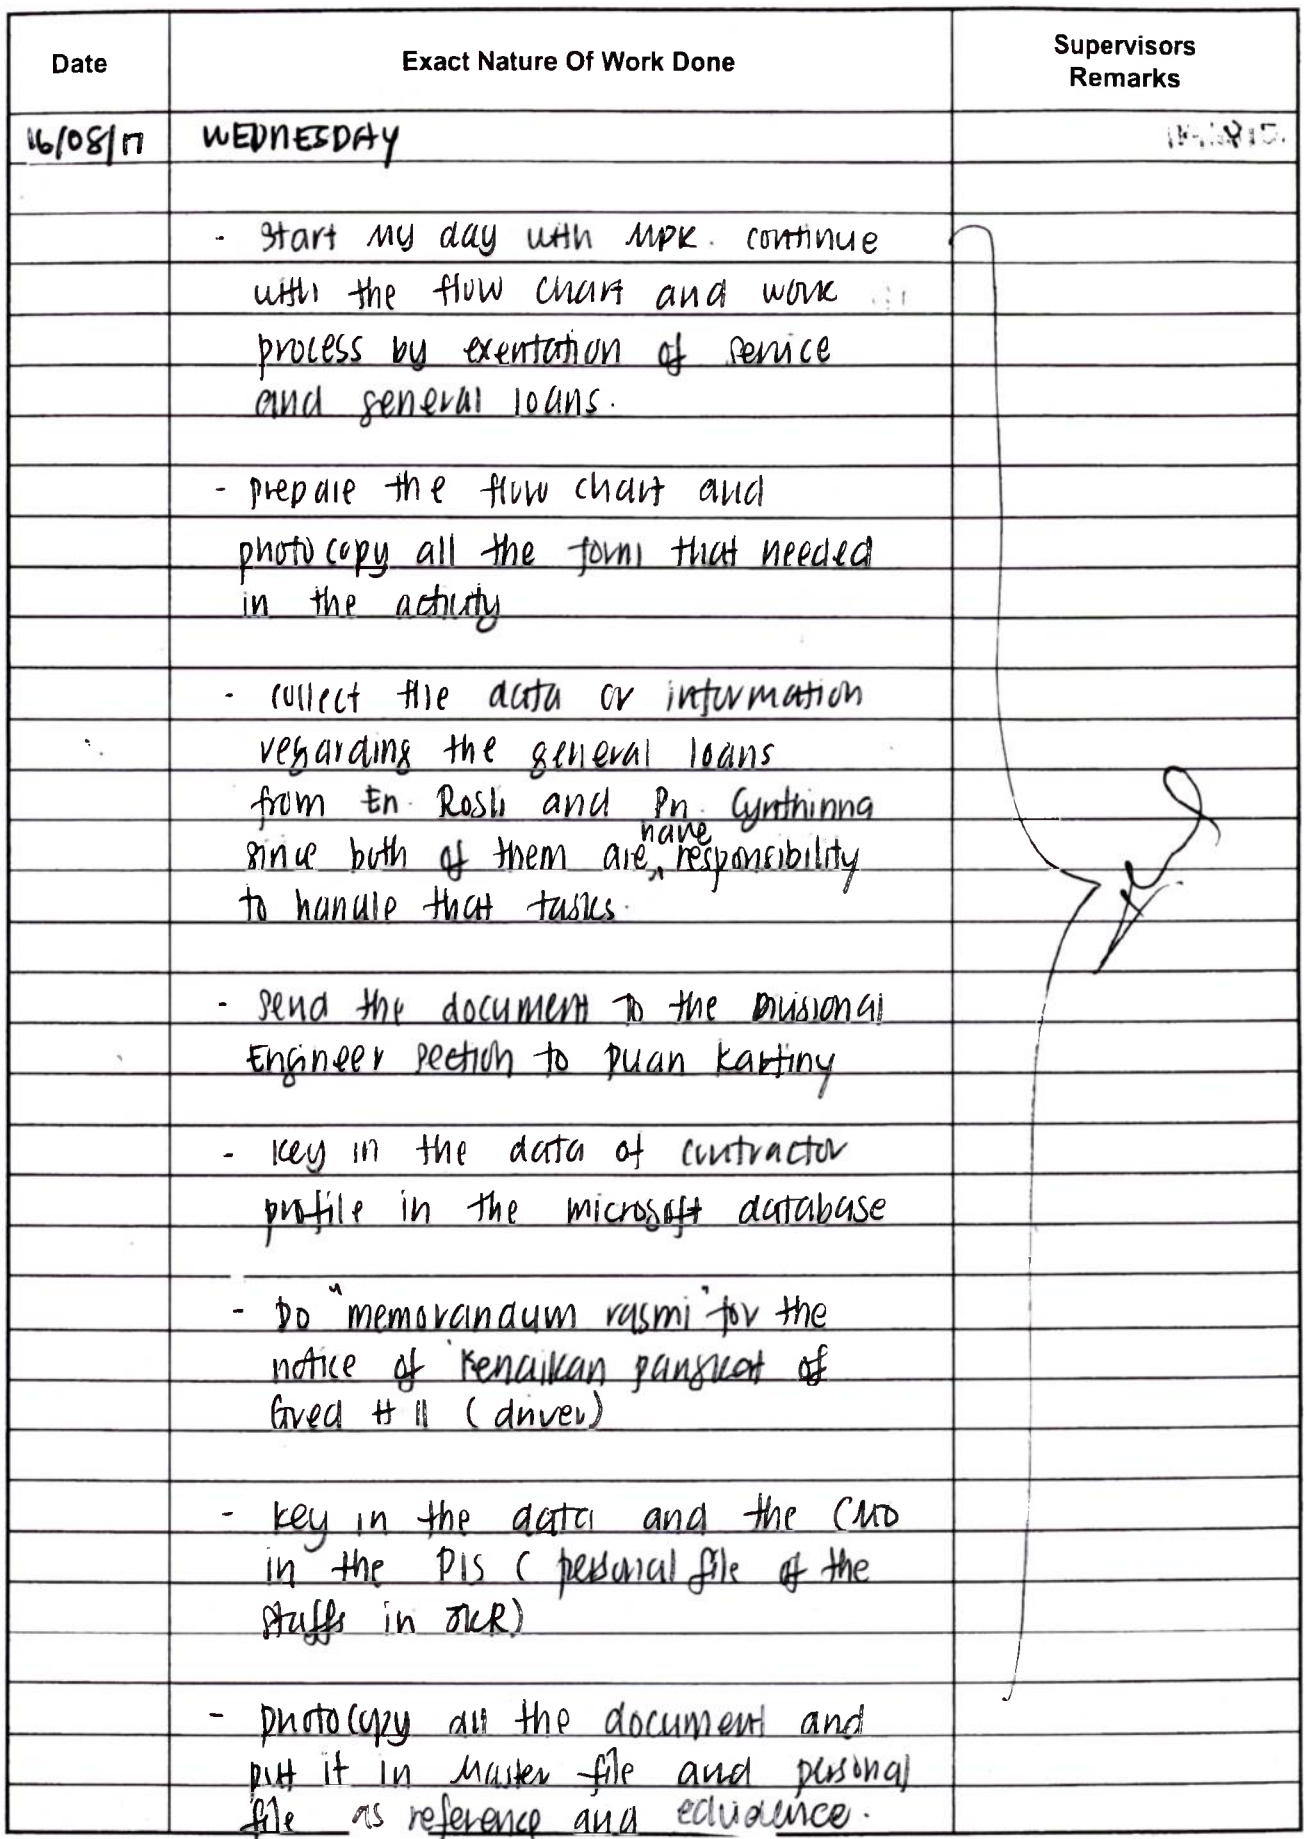 Date
Exact Nature Of Work Done
Supervisors
Remarks
16/08/17 WEDNESDAY
- start my day with MPK. continue
with the flow chart and work
process by exentation of service
and general loans.
- prepare the flow chart and
photocopy all the form that needed
in the activity
- collect the data or information
regarding the general loans
from En. Rosli and Pn. Cynthinna
since both of them are have responsibility
to handle that tasks.
- send the document to the Divisional
Engineer section to puan Kartiny
- key in the data of contractor
profile in the microsoft database
- Do "memorandum rasmi" for the
notice of kenaikan pangkat of
Gred H 11 (driver)
- key in the data and the CMO
in the PIS ( personal file of the
staffs in JKR)
- photocopy all the document and
put it in Master file and personal
file as reference and edvidence.